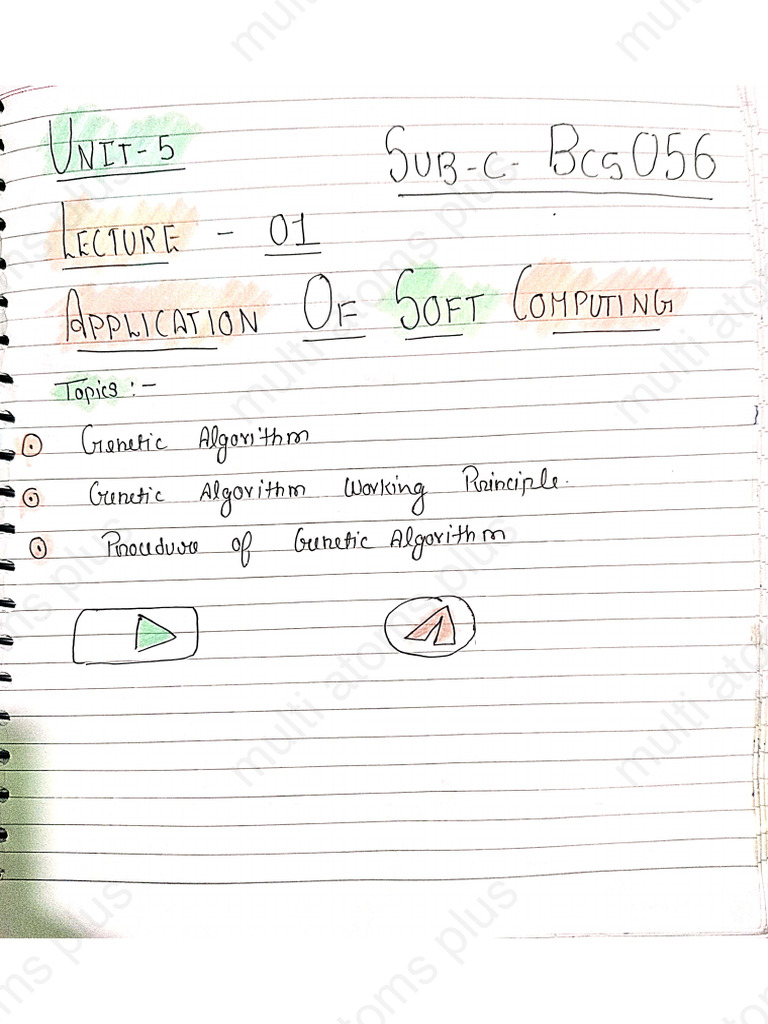 UNIT-5 SUB-C- BCS056
LECTURE - 01
APPLICATION OF SOFT COMPUTING
Topics :-
Genetic Algorithm
Genetic Algorithm Working Principle.
Procedure of Genetic Algorithm
multi atoms plus